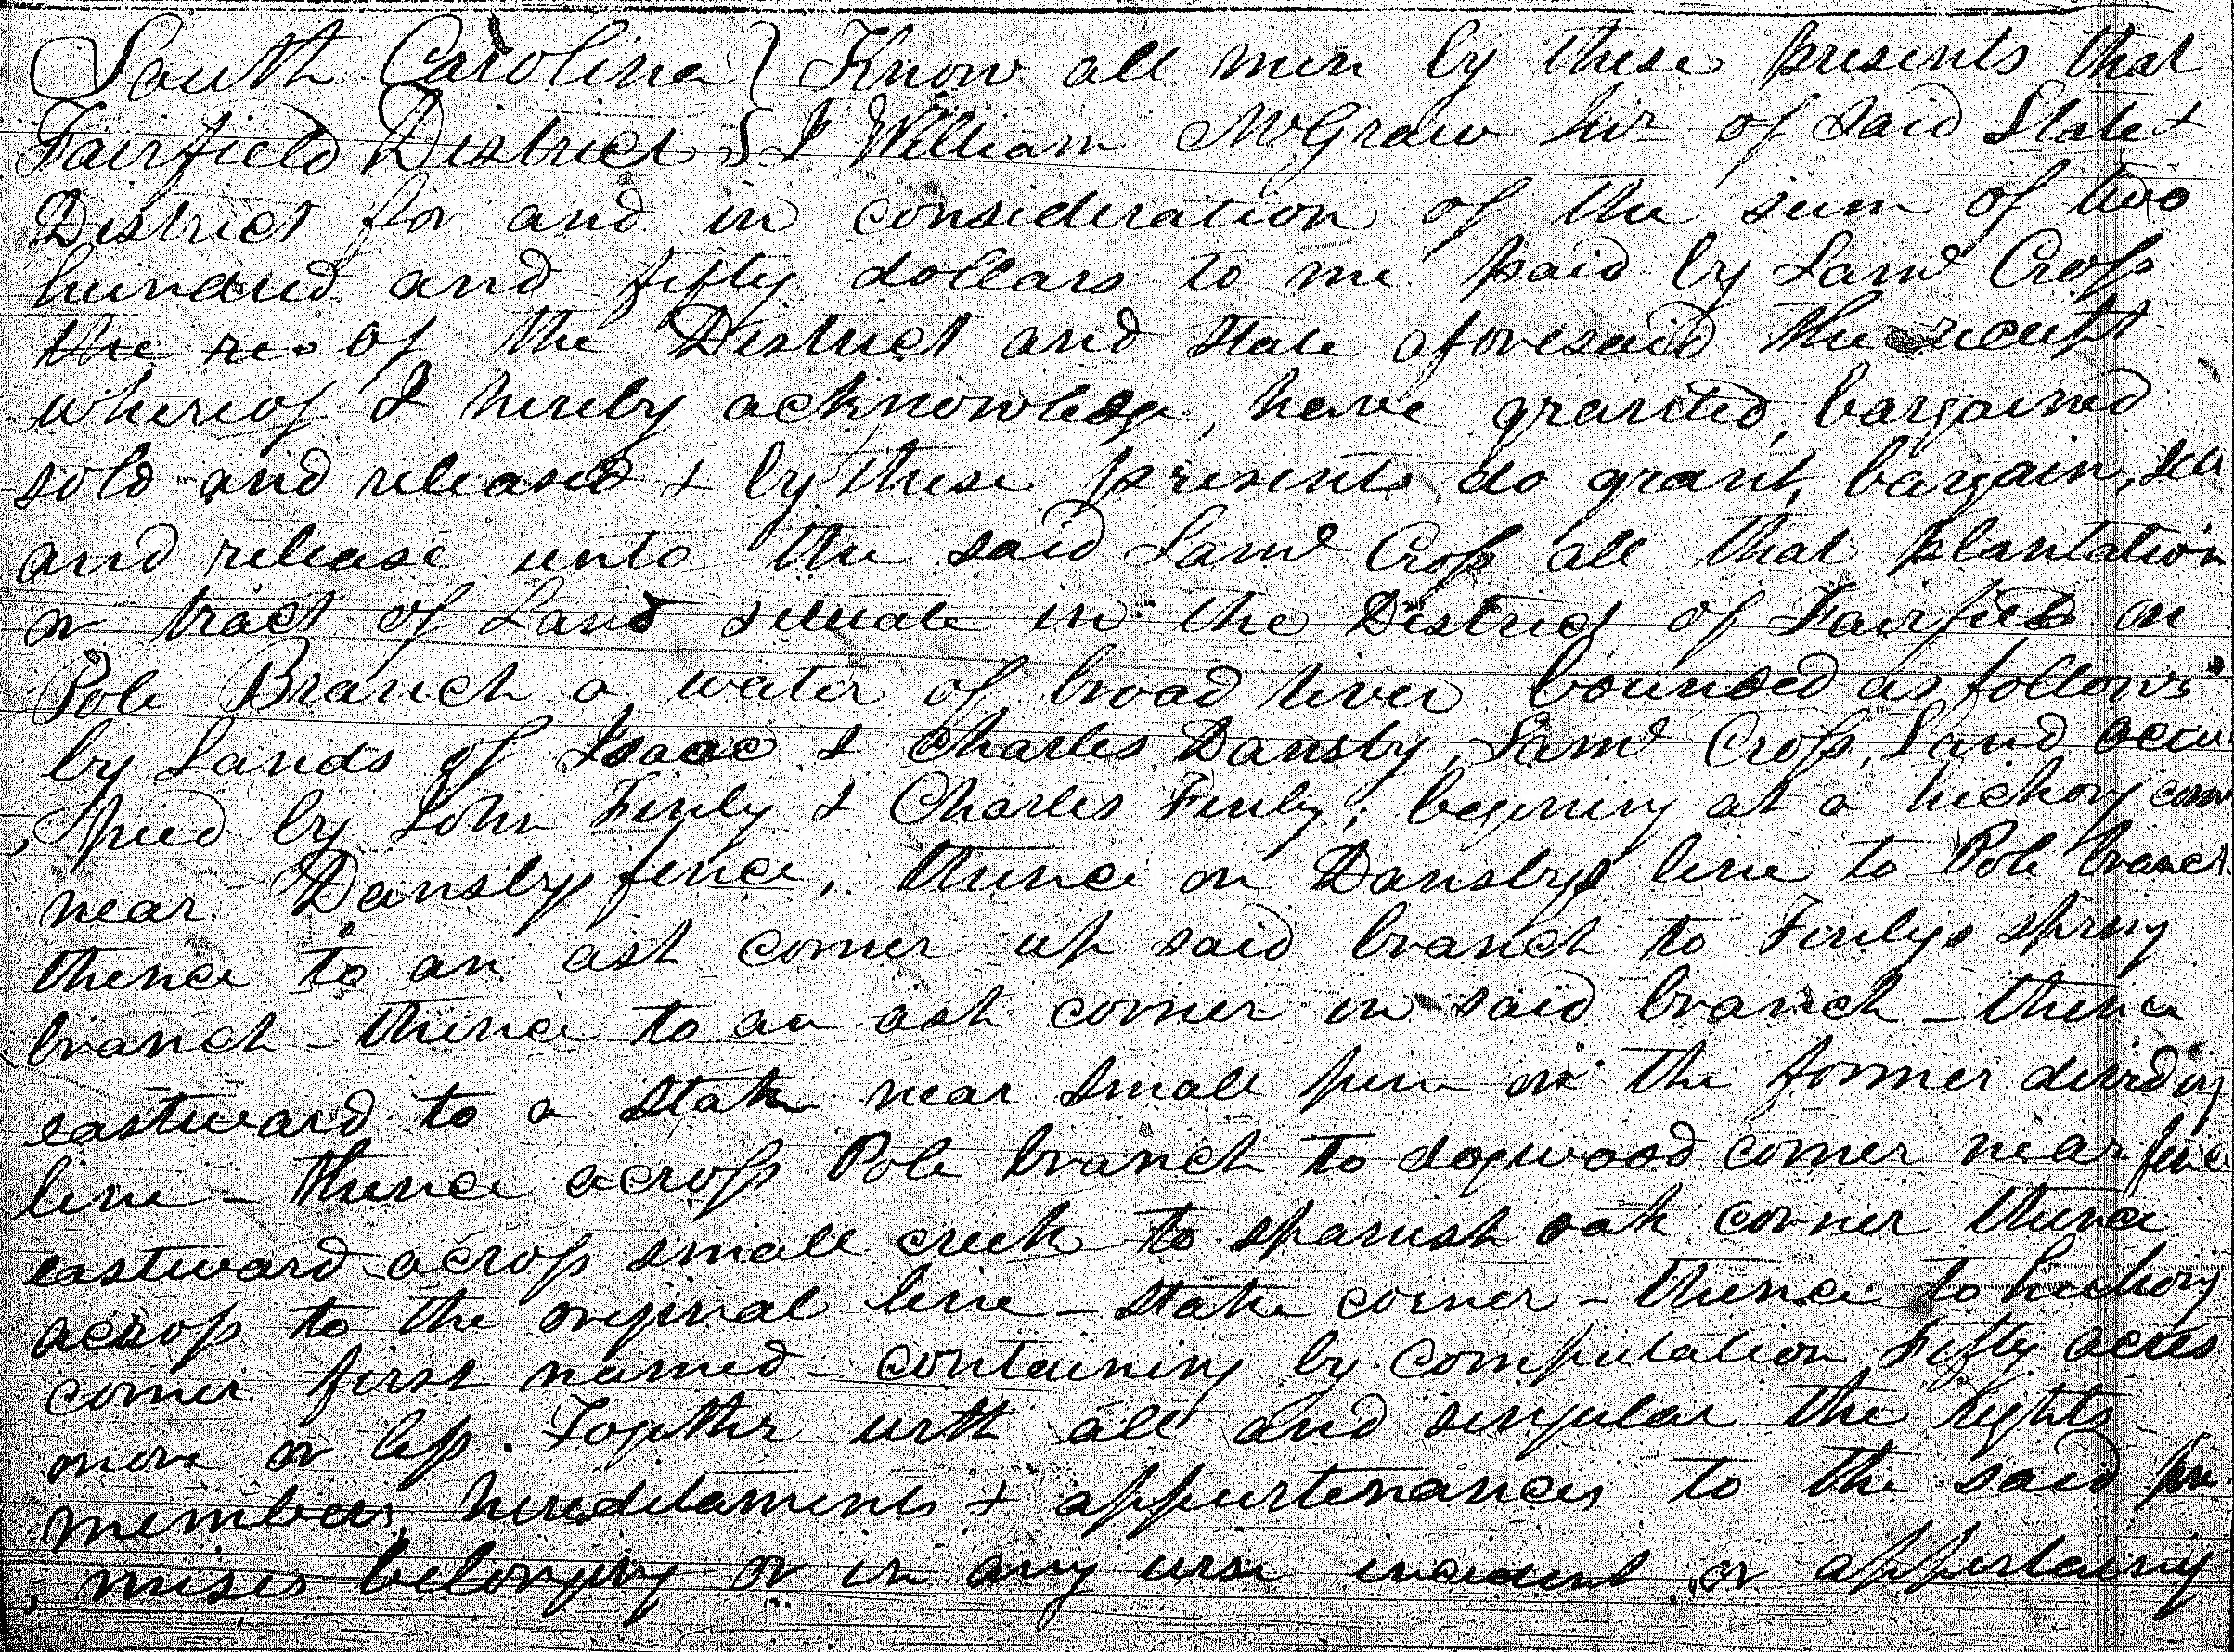 South Carolina } Know all men by these presents that
Fairfield District } I William McGraw Jur of said State &
District for and in consideration of the sum of two
hundred and fifty dollars to me paid by Saml Cross
the re of the District and State aforesaid the receipt
whereof I hereby acknowledge, have granted, bargained
sold and released & by these presents do grant, bargain, sell
and release unto the said Saml Cross all that plantation
or tract of Land situate in the District of Fairfield on
Pole Branch a water of broad river bounded as follows
by Lands of Isaac & Charles Dansby, Saml Cross, Land occu
,pied by John Finly & Charles Finly; begining at a hickory corner
near Dansbys fence, thence on Dansbys line to Pole branch
thence to an ash corner up said branch to Finlys spring
branch - thence to an ash corner in said branch - thence
eastward to a stake near small pine on the former dividing
line - thence across Pole branch to dogwood corner near fence
eastward across small creek to spanish oak corner thence
across to the original line - stake corner - thence to hickory
corner first named - containing by computation Fifty acres
more or less. Together with all and singular the rights
members, hereditaments & appurtenances to the said pre
,mises belonging or in any wise incident or appertaining